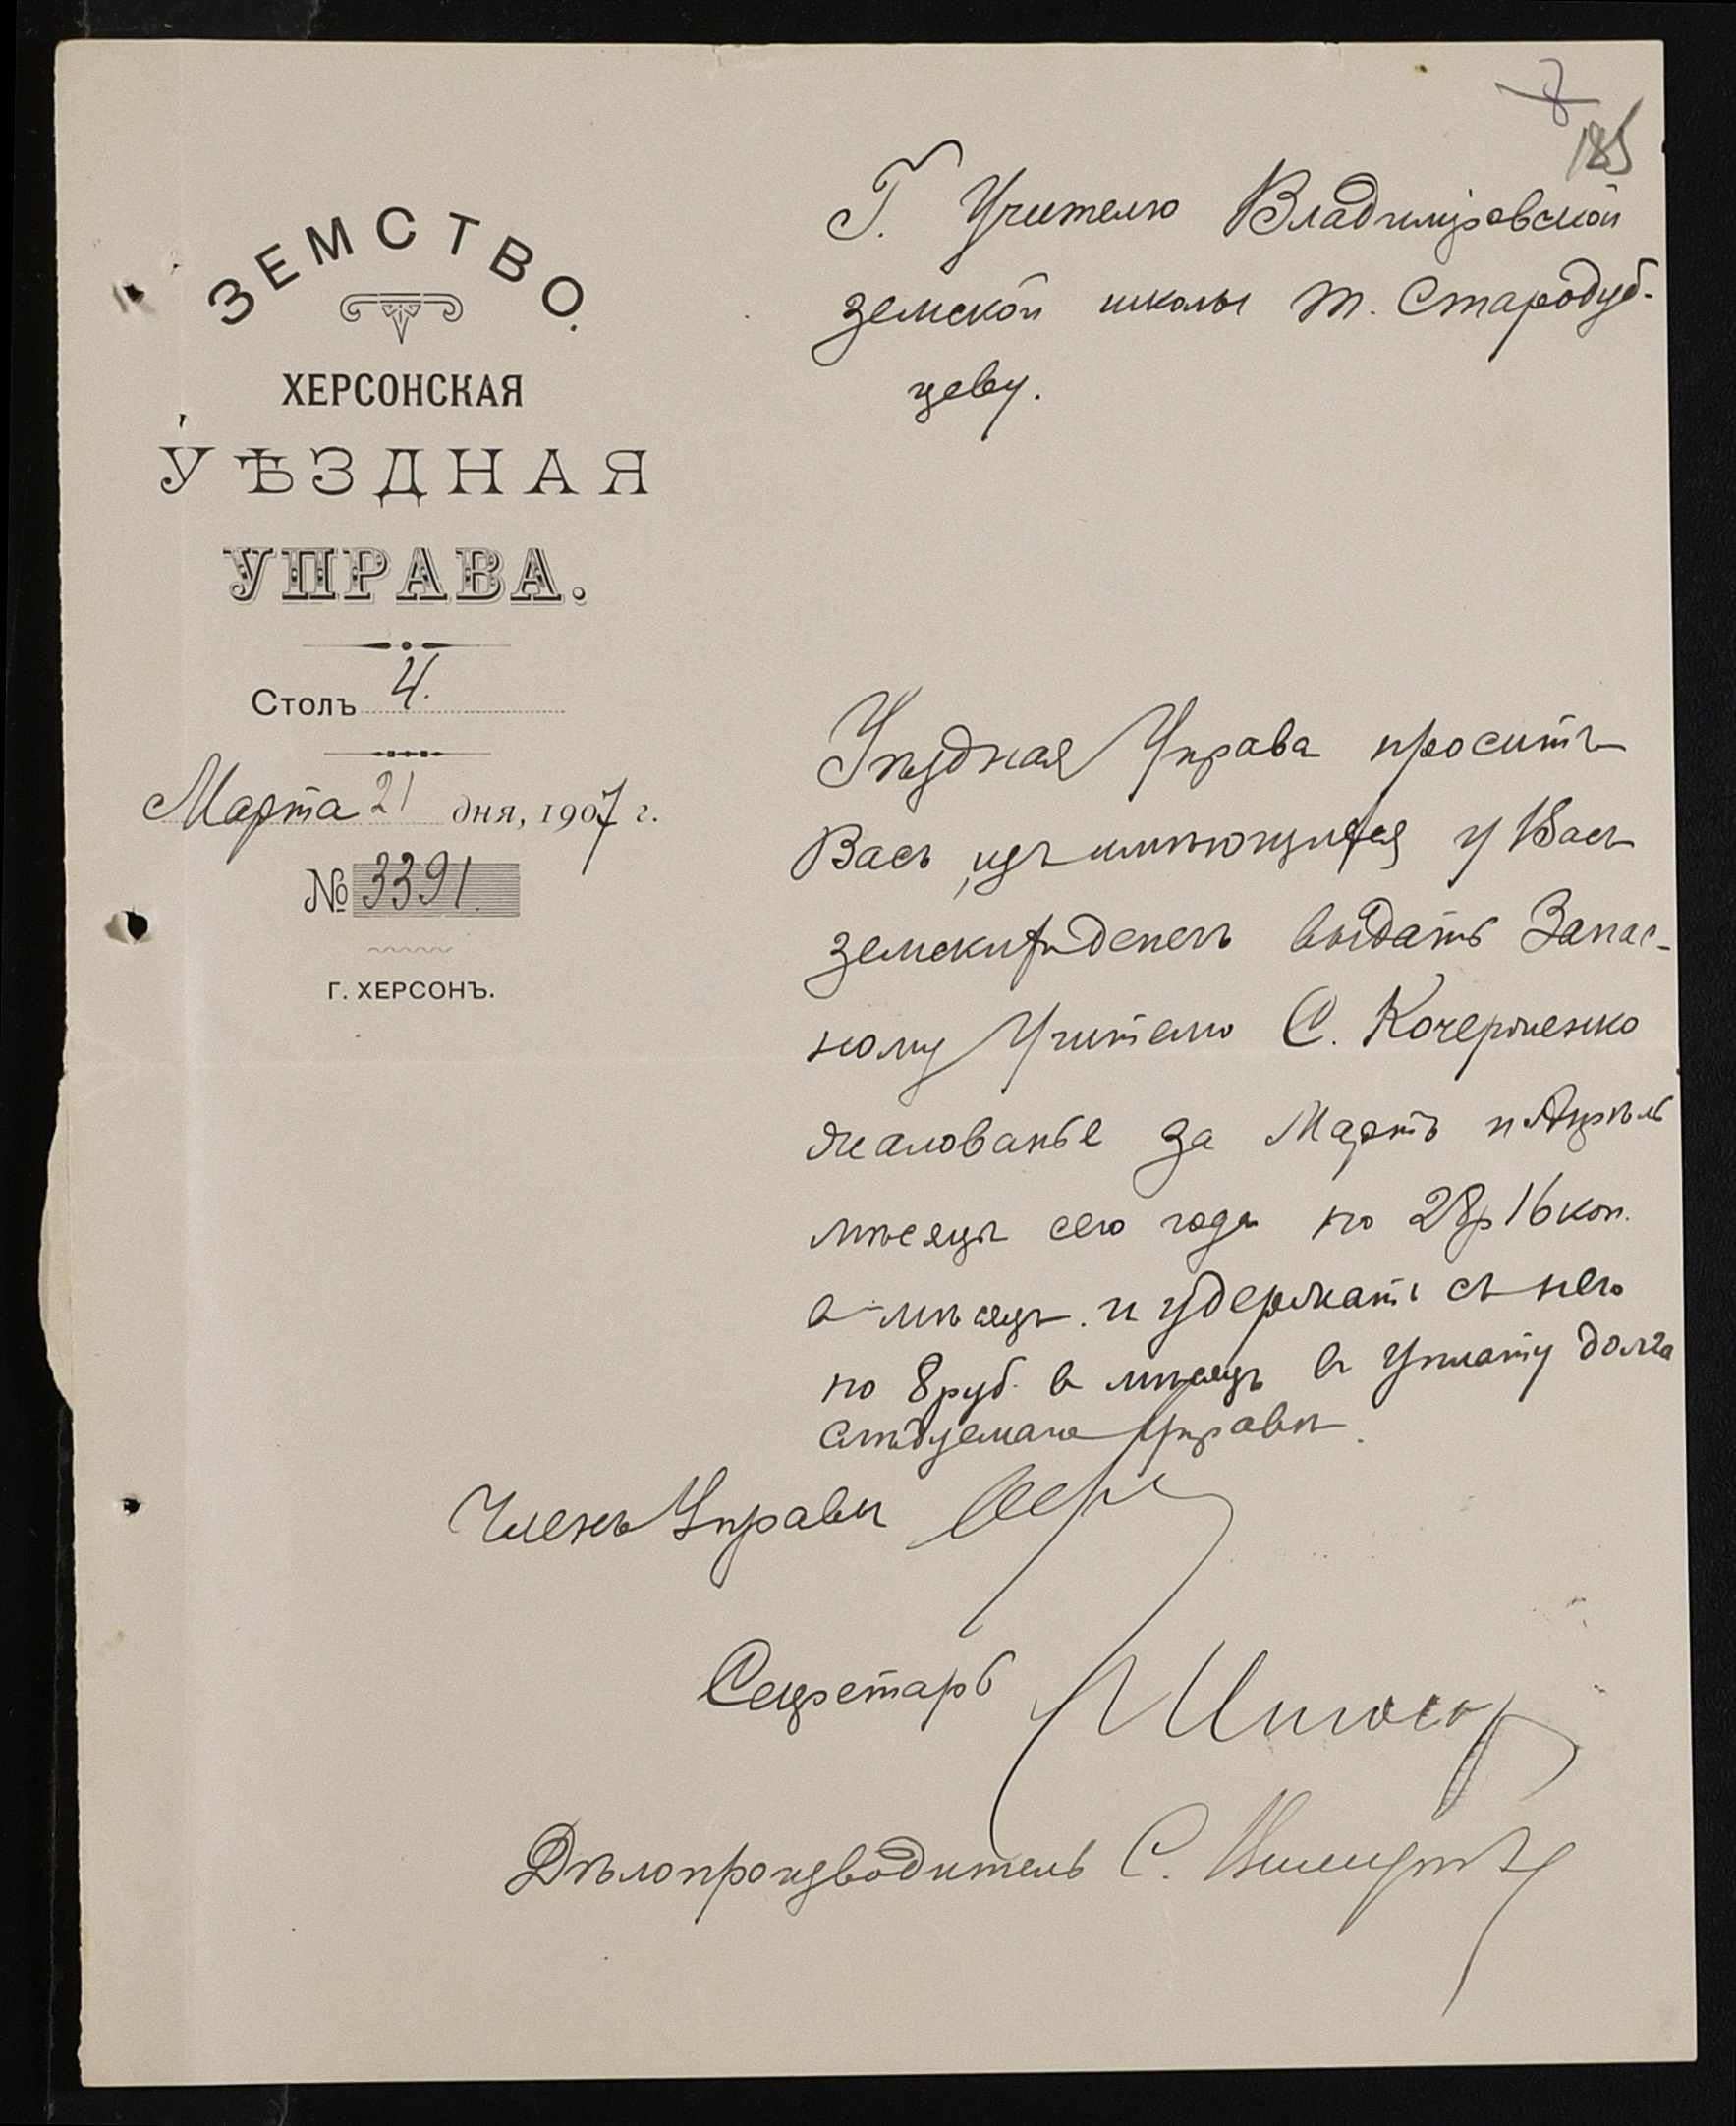 8
185
ЗЕМСТВО.
ХЕРСОНСКАЯ
УѢЗДНАЯ
УПРАВА.
Столъ 4.
Марта 21 дня, 1907 г.
№ 3391.
Г. ХЕРСОНЪ.
Г. Учителю Владимiровской
земской школы т. Стародуб-
цеву.
Уѣздная Управа проситъ
Васъ, изъ имѣющихся у Васъ
земскихъ денегъ выдать Запас-
ному Учителю С. Кочерженко
жалованье за Мартъ и Апрѣль
мѣсяцы сего года по 28р 16 коп.
в мѣсяцъ. и удержать съ него
по 8 руб. в мѣсяцъ въ уплату долга
слѣдуемаго Управѣ.
Членъ Управы
Секретарь
Дѣлопроизводитель С.